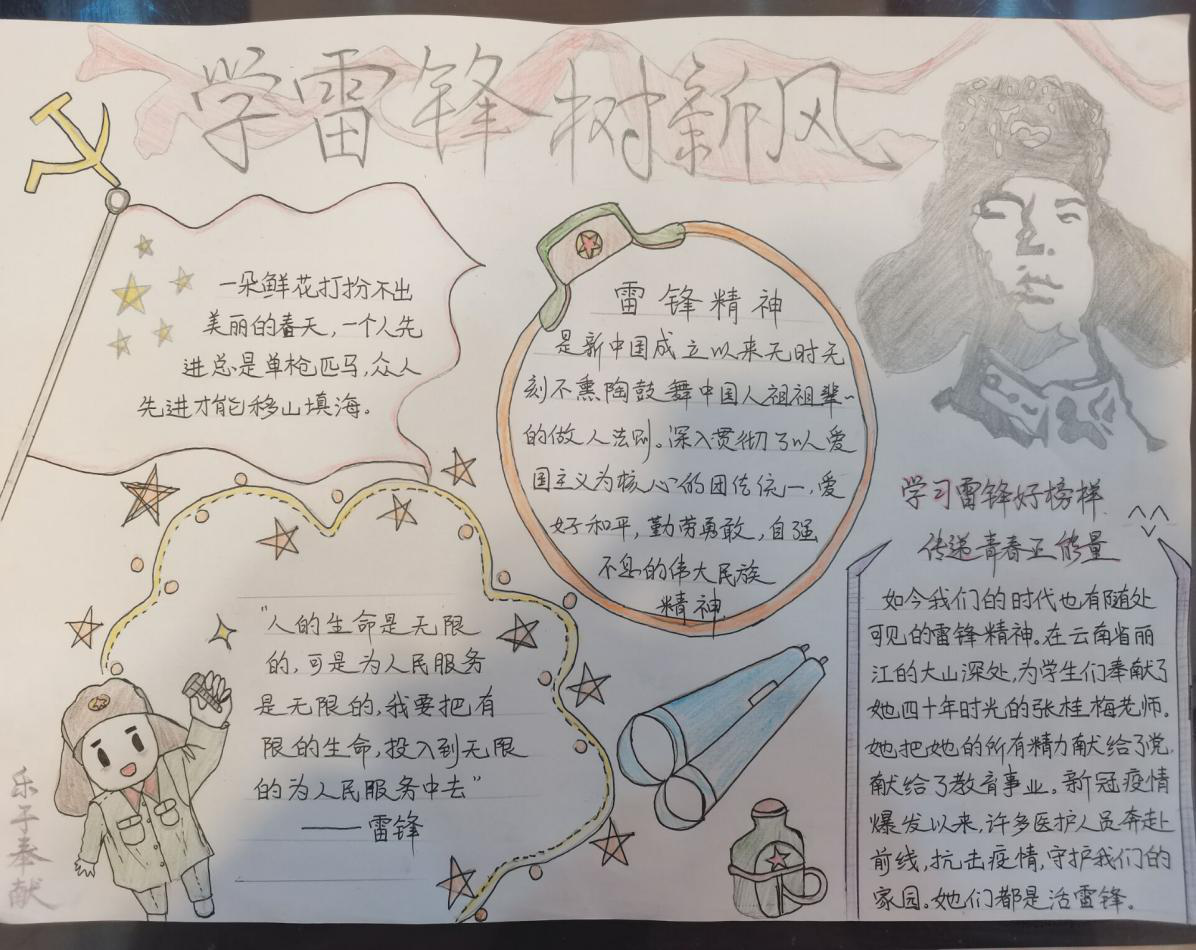 学雷锋树新风
一朵鲜花打扮不出
美丽的春天,一个人先
进总是单枪匹马,众人
先进才能移山填海。
雷锋精神
是新中国成立以来无时无
刻不熏陶鼓舞中国人祖祖辈~
的做人法则。深入贯彻了以爱
国主义为核心的团结统一,爱
好和平,勤劳勇敢,自强
不息的伟大民族
精神.
"人的生命是无限
的,可是为人民服务
是无限的,我要把有
限的生命,投入到无限
的为人民服务中去"
——雷锋
学习雷锋好榜样.
传递青春正能量
如今我们的时代也有随处
可见的雷锋精神。在云南省丽
江的大山深处,为学生们奉献了
她四十年时光的张桂梅老师。
她把她的所有精力献给了党.
献给了教育事业。新冠疫情
爆发以来,许多医护人员奔赴
前线,抗击疫情,守护我们的
家园。她们都是活雷锋。
乐于奉献